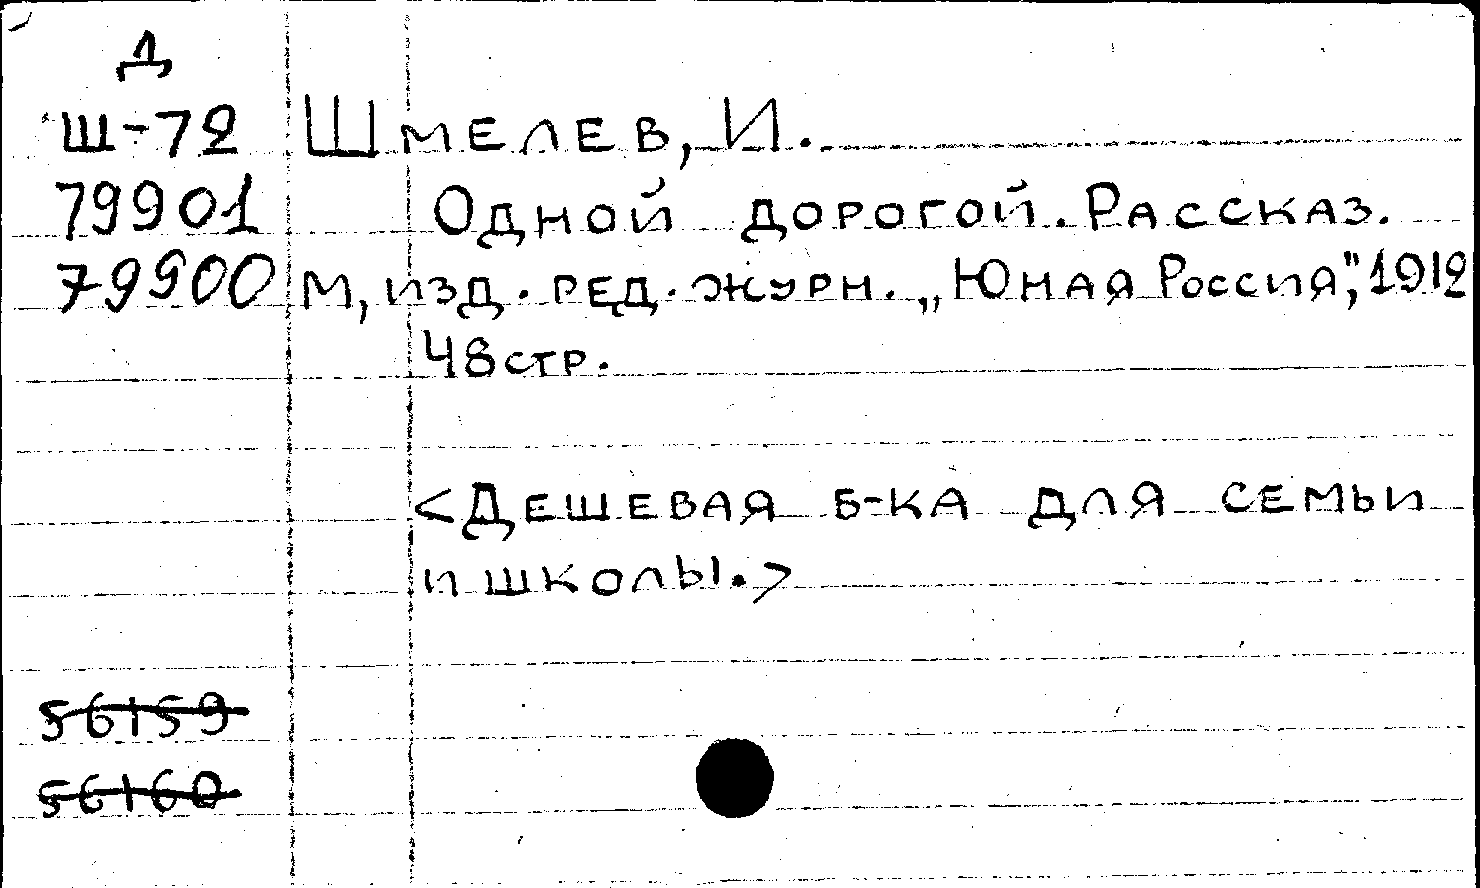 Д
Ш-72 Шмелев, И.
79901 Одной дорогой. Рассказ.
79900 М, изд. ред. журн. „Юная Россия", 1912
48 стр.
<Дешевая б-ка для семьи
и школы.>
56159
56160